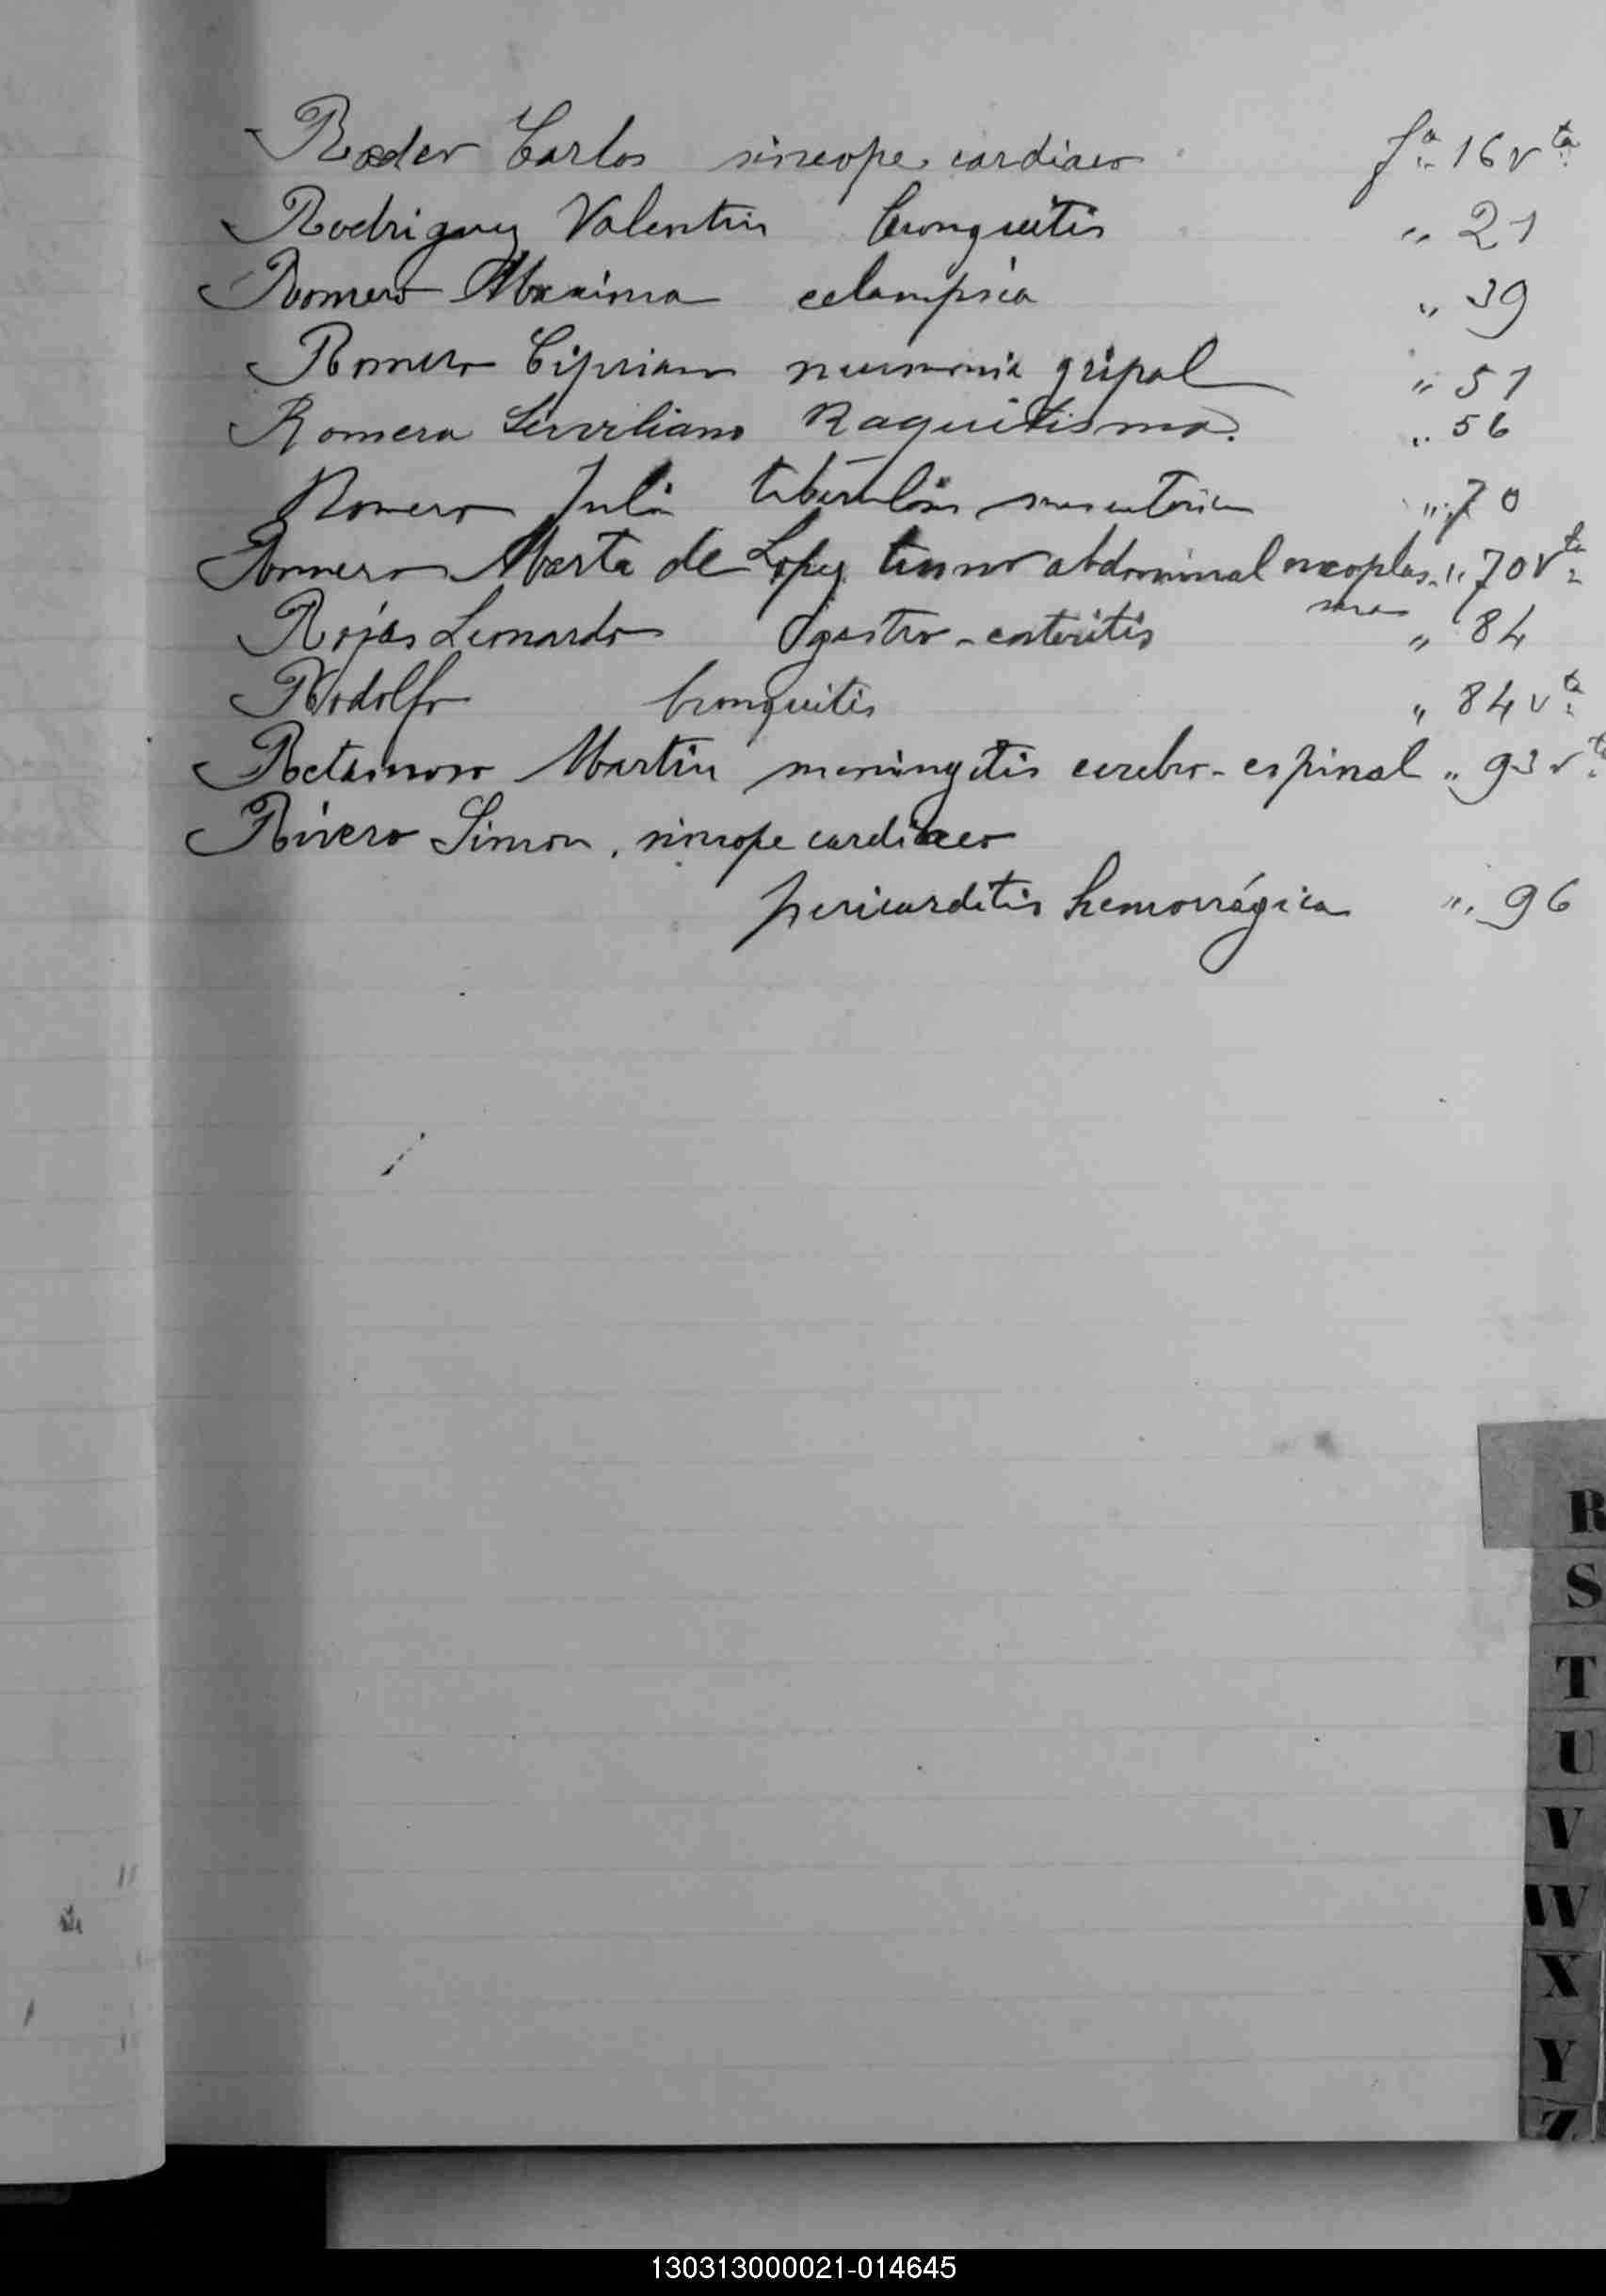 Roder Carlos sincope cardiaco fª 16 vta
Rodriguez Valentin bronquitis " 21
Romero Maxima eclampsia " 39
Romero Cipriano neumonia gripal " 51
Romera Raquitismo. " 56
Romero Julia tuberculosis mesenterica " 70
Romero Marta de Lopez tumor abdominal neoplas- " 70 vta
Rojas Leonardo gastro-enteritis " 84
Rodolfo bronquitis " 84 vta
Retamoso Martin meningitis cerebro-espinal " 93 vta
Rivero Simon, sincope cardiaco
pericarditis hemorrágica " 96
R
S
T
U
V
W
X
Y
Z
130313000021-014645